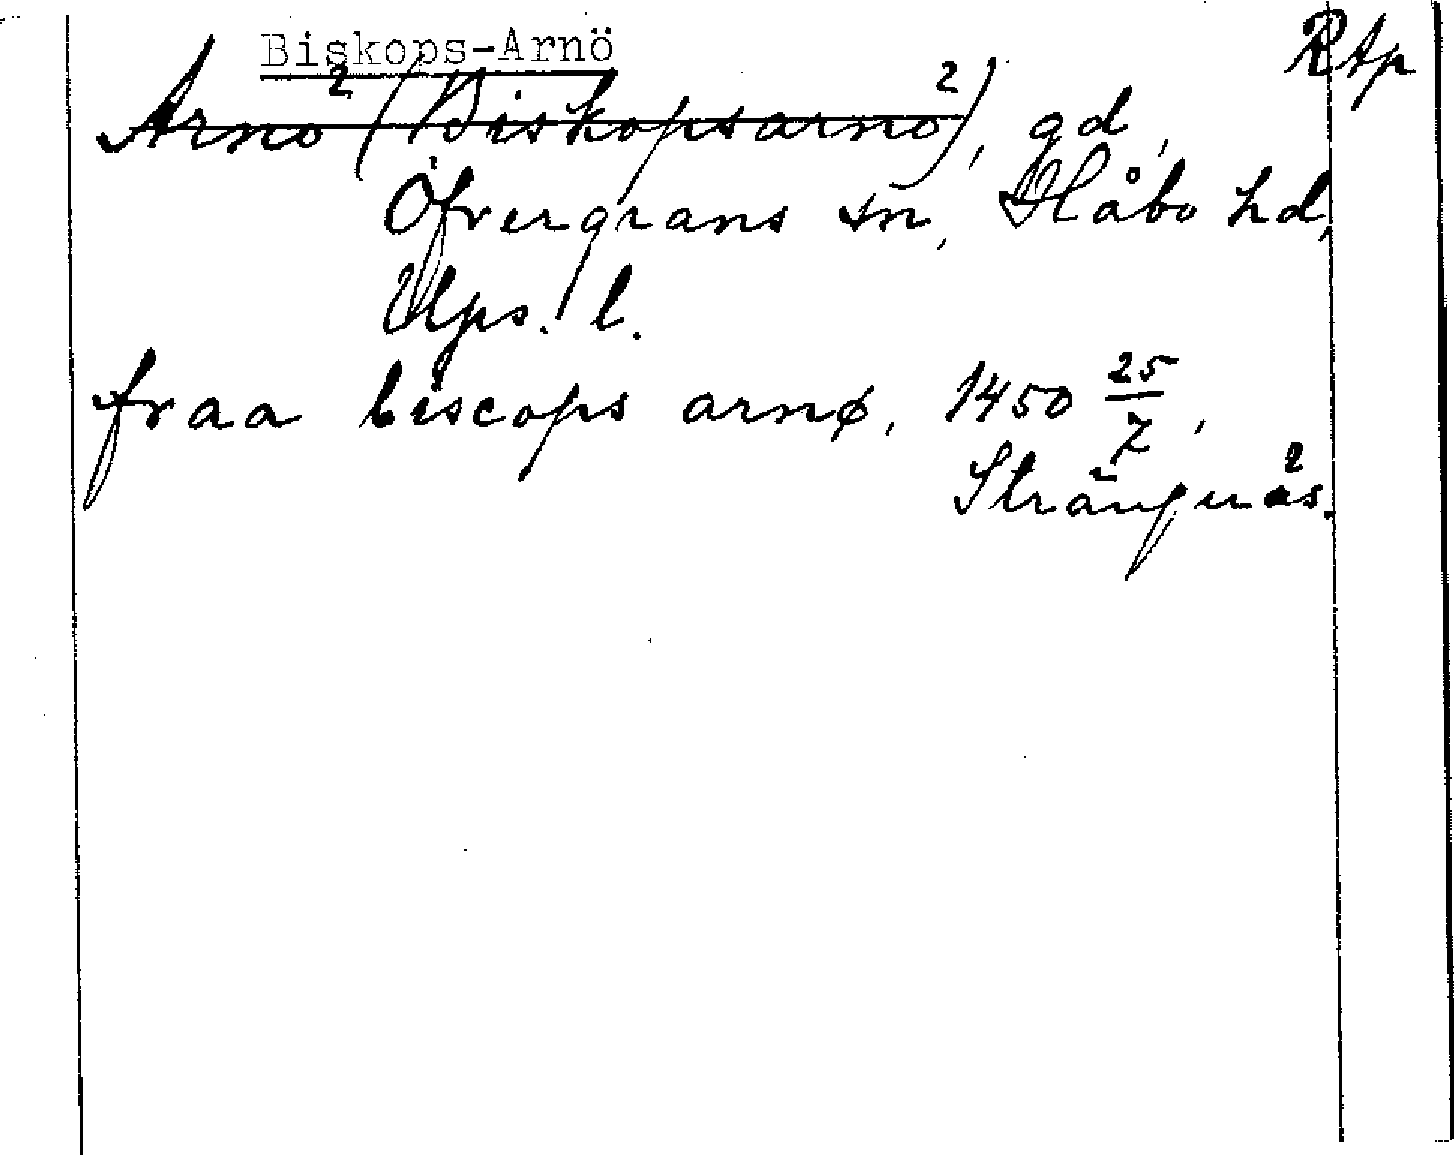 Biskops-Arnö
Rtp
Arnö (Biskopsarnö), gd,
Öfvergrans sn, Håbo hd,
Ups. l.
fraa biscops arnø, 1450 25/7,
Strängnäs.